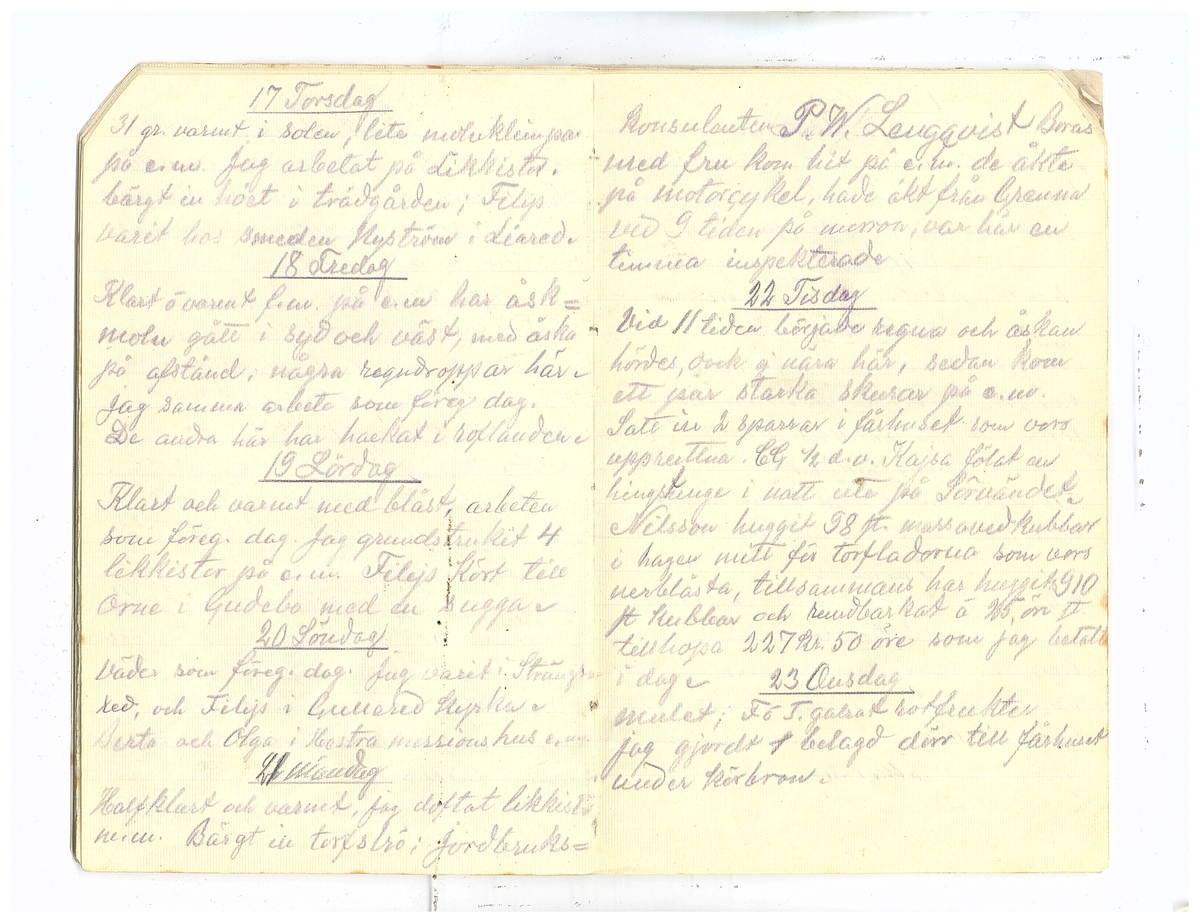 17 Torsdag
31 gr. varmt i solen, lite molnklimpar
på e.m. jag arbetat på Likkistor.
bärgt in höet i trädgården; Filip
varit hos smeden Nyström i Liared.
18 Fredag
Klart o varmt f.m. på e.m har åsk=
moln gått i syd och väst, med åska
på afstånd; några regndroppar här.
jag samma arbete som föreg dag.
De andra här har hackat i roflanden.
19 Lördag
Klart och varmt med blåst, arbeten
som föreg. dag. jag grundstrukit 4
likkistor på e.m. Filip kört till
Orne i Gudebo med en sugga.
20 Söndag
väder som föreg. dag. jag varit i
red, och Filip i Gullered kyrka.
Berta och Olga i Hestra missionshus e.m.
21 Måndag
Halfklart och varmt, jag doftat likkistor
m.m. Bärgt in torfströ; jordbruks=
konsulenten P. W. Lengqvist Borås
med fru kom hit på e.m. de åkte
på motorcykel, hade åkt från Grenna
vid 9 tiden på morron, var här en
timma inspekterade
22 Tisdag
Vid 11 tiden började regna och åskan
hördes, dock ej nära här, sedan kom
ett par starka skurar på e.m.
Satt in 2 sparrar i fårhuset som vors
uppruttna. CG 1/2 d.v. Kajsa fölat en
hingstunge i natt ute på Sörvändet.
Nilsson huggit 98 ft. massavedkubbar
i hagen mitt för torfladorna som vors
nerblåsta, tillsammans har huggit 910
ft kubbar och randbarkat à 25 öre ft
tillhopa 227 Kr. 50 öre som jag betalt
i dag.
23 Onsdag
mulet; F o T. galrat rotfrukter
jag gjordt 1 belagd dörr till fårhuset
under körbron.